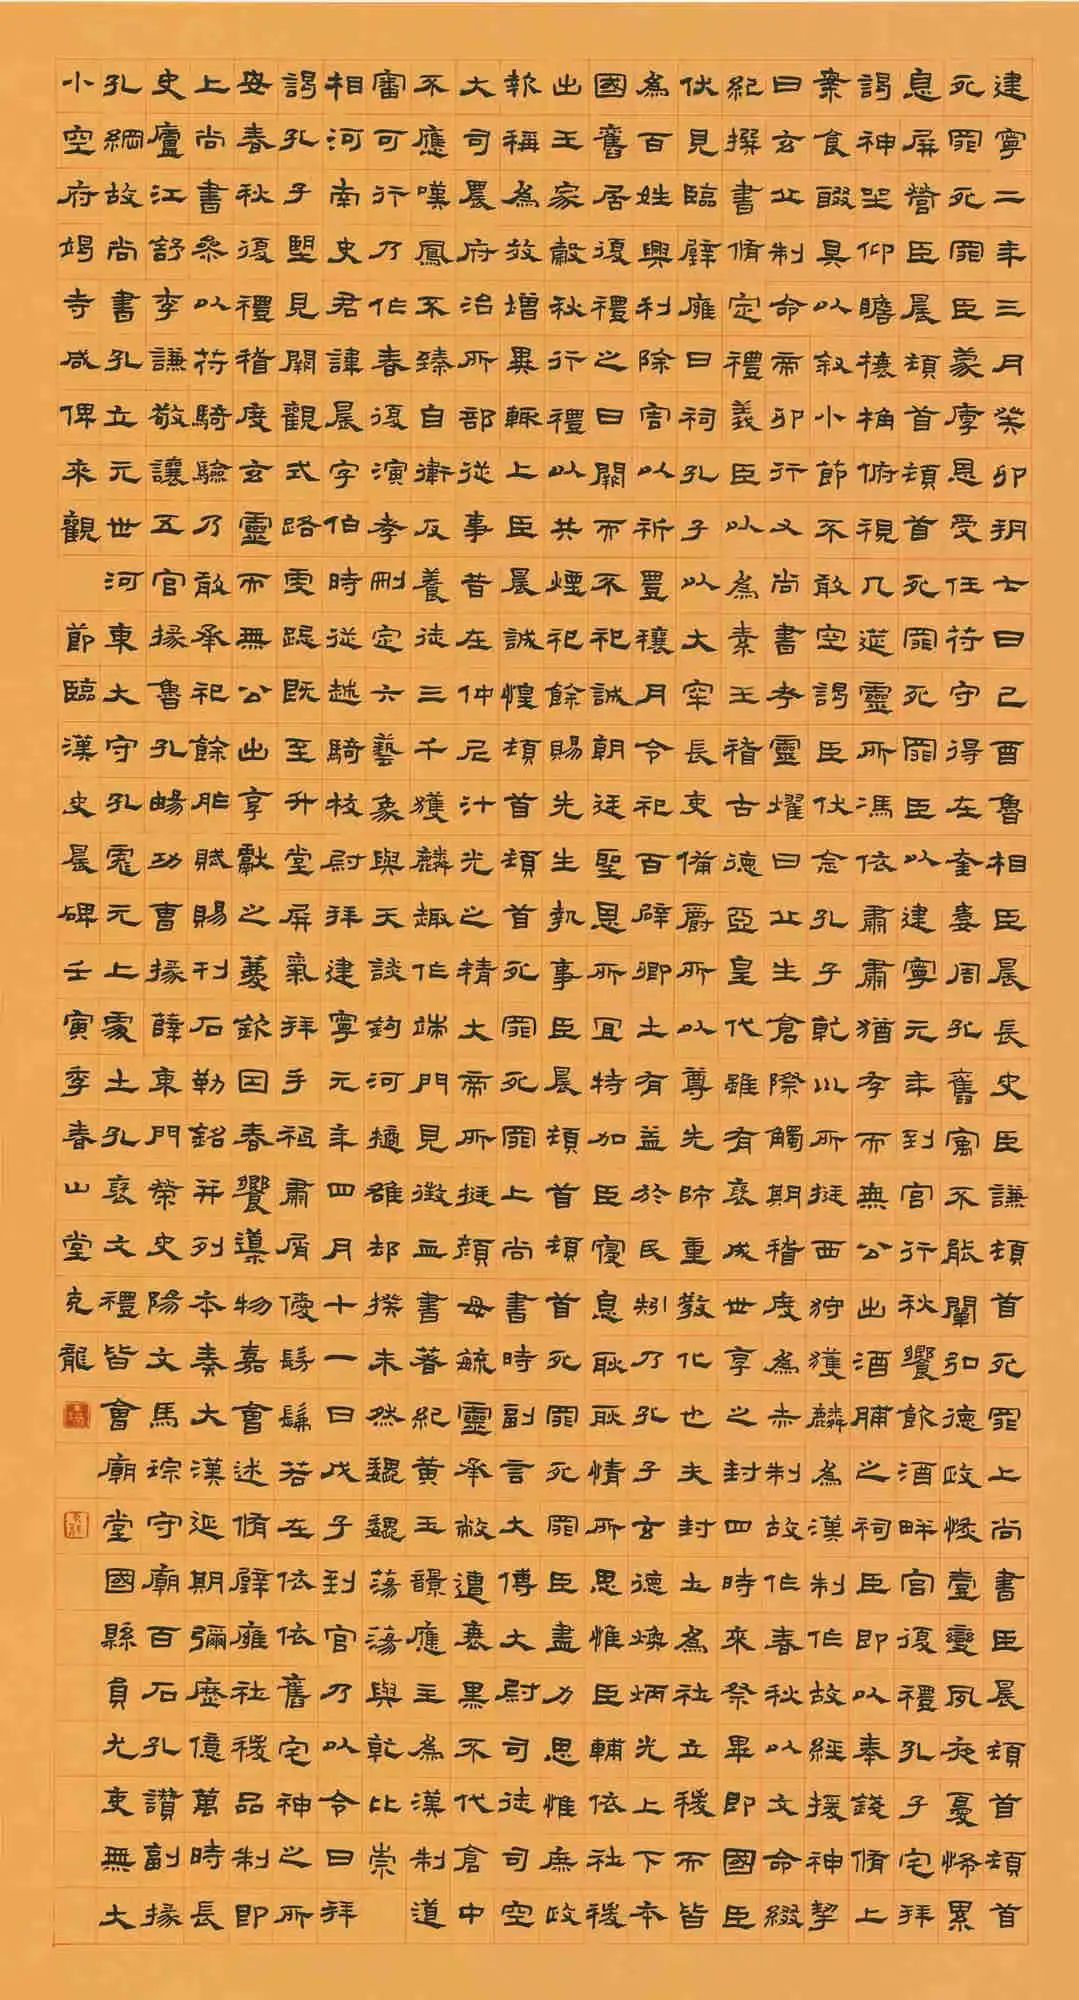 建寧二年三月癸卯朔七日己酉魯相臣晨長史臣謙頓首死罪上尚書臣晨頓首頓首
死罪死罪臣蒙厚恩受任符守得在奎婁周孔舊寓不能闡弘德政恢壹變夙夜憂怖累
息屏營臣晨頓首頓首死罪死罪臣以建寧元年到官行秋饗飲酒畔宮復禮孔子宅拜
謁神坐仰瞻榱桷俯視几筵靈所馮依肅肅猶存而無公出酒脯之祠臣即以奉錢脩上
案食醊具以叙小節不敢空謁臣伏念孔子乾川所挺西狩獲麟為漢制作故經援神挈
曰玄丘制命帝卯行又尚書考靈燿曰丘生倉際觸期稽度為赤制故作春秋以文命綴
紀撰書脩定禮義臣以為素王稽古德亞皇代雖有褒成世享之封四時來祭畢即國臣
伏見臨璧雍日祠孔子以大牢長吏備爵所以尊先師重教化也夫封土為社立稷而皆
為百姓興利除害以祈豐穰月令祀百辟卿士有益於民矧乃孔子玄德煥炳光上下本
國舊居復禮之日闕而不祀誠朝廷聖恩所宜特加臣寑息耿耿情所思惟臣輔依社稷
出王家穀秋行禮以共煙祀餘賜先生執事臣晨頓首頓首死罪死罪臣盡力思惟庶政
報稱為效增異輒上臣晨誠惶頓首頓首死罪死罪上尚書時副言大傅大尉司徒司空
大司農府治所部從事昔在仲尼汁光之精大帝所挺顏母毓靈承敝遭衰黑不代倉中
不應嘆鳳不臻自衛反養徒三千獲麟趣作端門見徵血書著紀黃玉韻應主為漢制道
審可行乃作春復演孝刪定六藝象與天談鈞河擿雒却揆未然魏魏蕩蕩與乾比崇
相河南史君諱晨字伯時從越騎校尉拜建寧元年四月十一日戊子到官乃以令日拜
謁孔子望見闕觀式路虔跽既至升堂屏氣拜手祗肅屑僾髣髴若在依依舊宅神之所
安春秋復禮稽度玄靈而無公出享獻之薦欽因春饗導物嘉會述脩璧雍社稷品制即
上尚書參以符騎驗乃敢承祀餘胙賦賜刊石勒銘并列本奏大漢延期彌歷億萬時長
史廬江舒李謙敬讓五官掾魯孔暢功曹掾薛東門榮史陽文馬琮守廟百石孔讚副掾
孔綱故尚書孔立元世河東大守孔彪元上處士孔褒文禮皆會廟堂國縣員尤吏無大
小空府竭寺咸俾來觀 節臨漢史晨碑壬寅季春山堂克龍